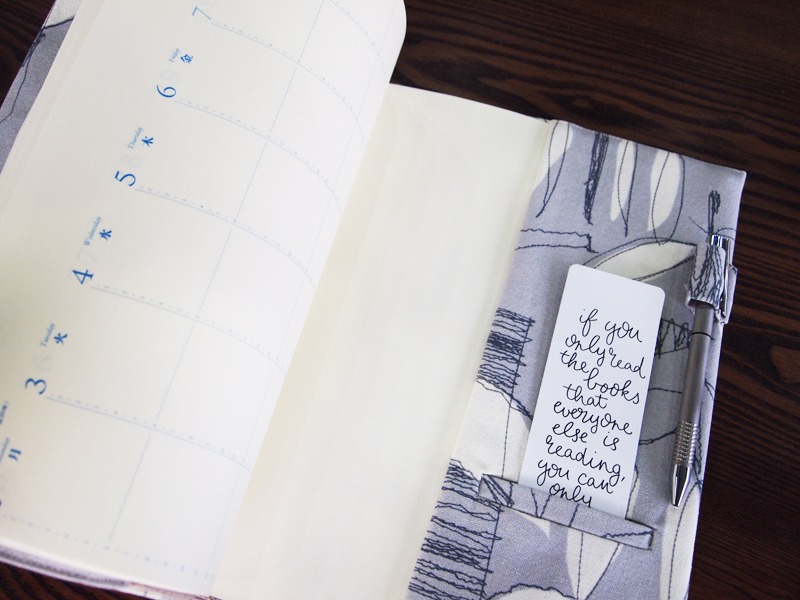 7
Friday
金
6
Thursday
木
5
Wednesday
水
4
Tuesday
火
3
月
if you
only read
the books
that
everyone
else is
reading,
you can
only